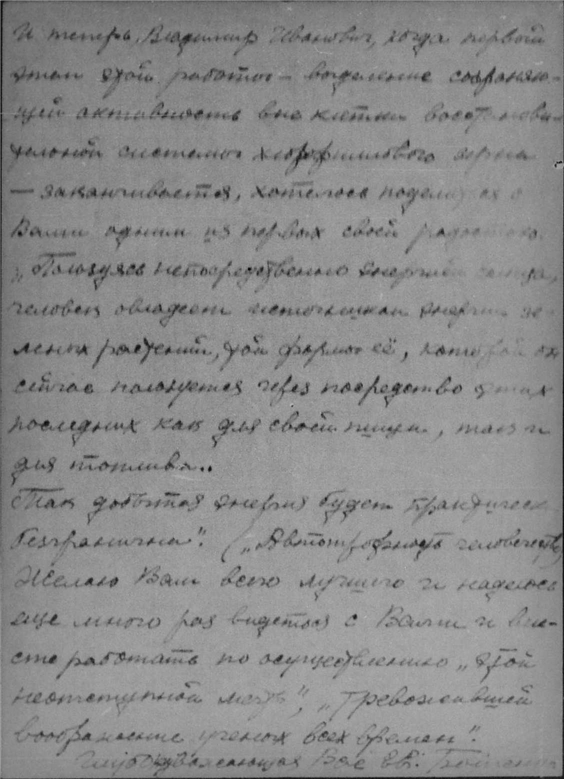 И теперь, Владимир Иванович, когда первый
этап этой работы — выделение сохраняю-
щей активность вне клетки восстанови-
тельной системы хлорофиллового зерна
— заканчивается, хотелось поделиться с
Вами одним из первых своей радостью.
„Пользуясь непосредственно энергией солнца,
человек овладеет источником энергии зе-
леных растений, той формой её, которой он
сейчас пользуется через посредство этих
последних как для своей пищи, так и
для топлива..
Так добытая энергия будет практически
безгранична". („Автотрофность человечества
Желаю Вам всего лучшего и надеюсь
еще много раз видеться с Вами и вме-
сте работать по осуществлению „этой
неотступной мечты", „тревожившей
воображение ученых всех времен".
Глубокоуважающая Вас Ев.